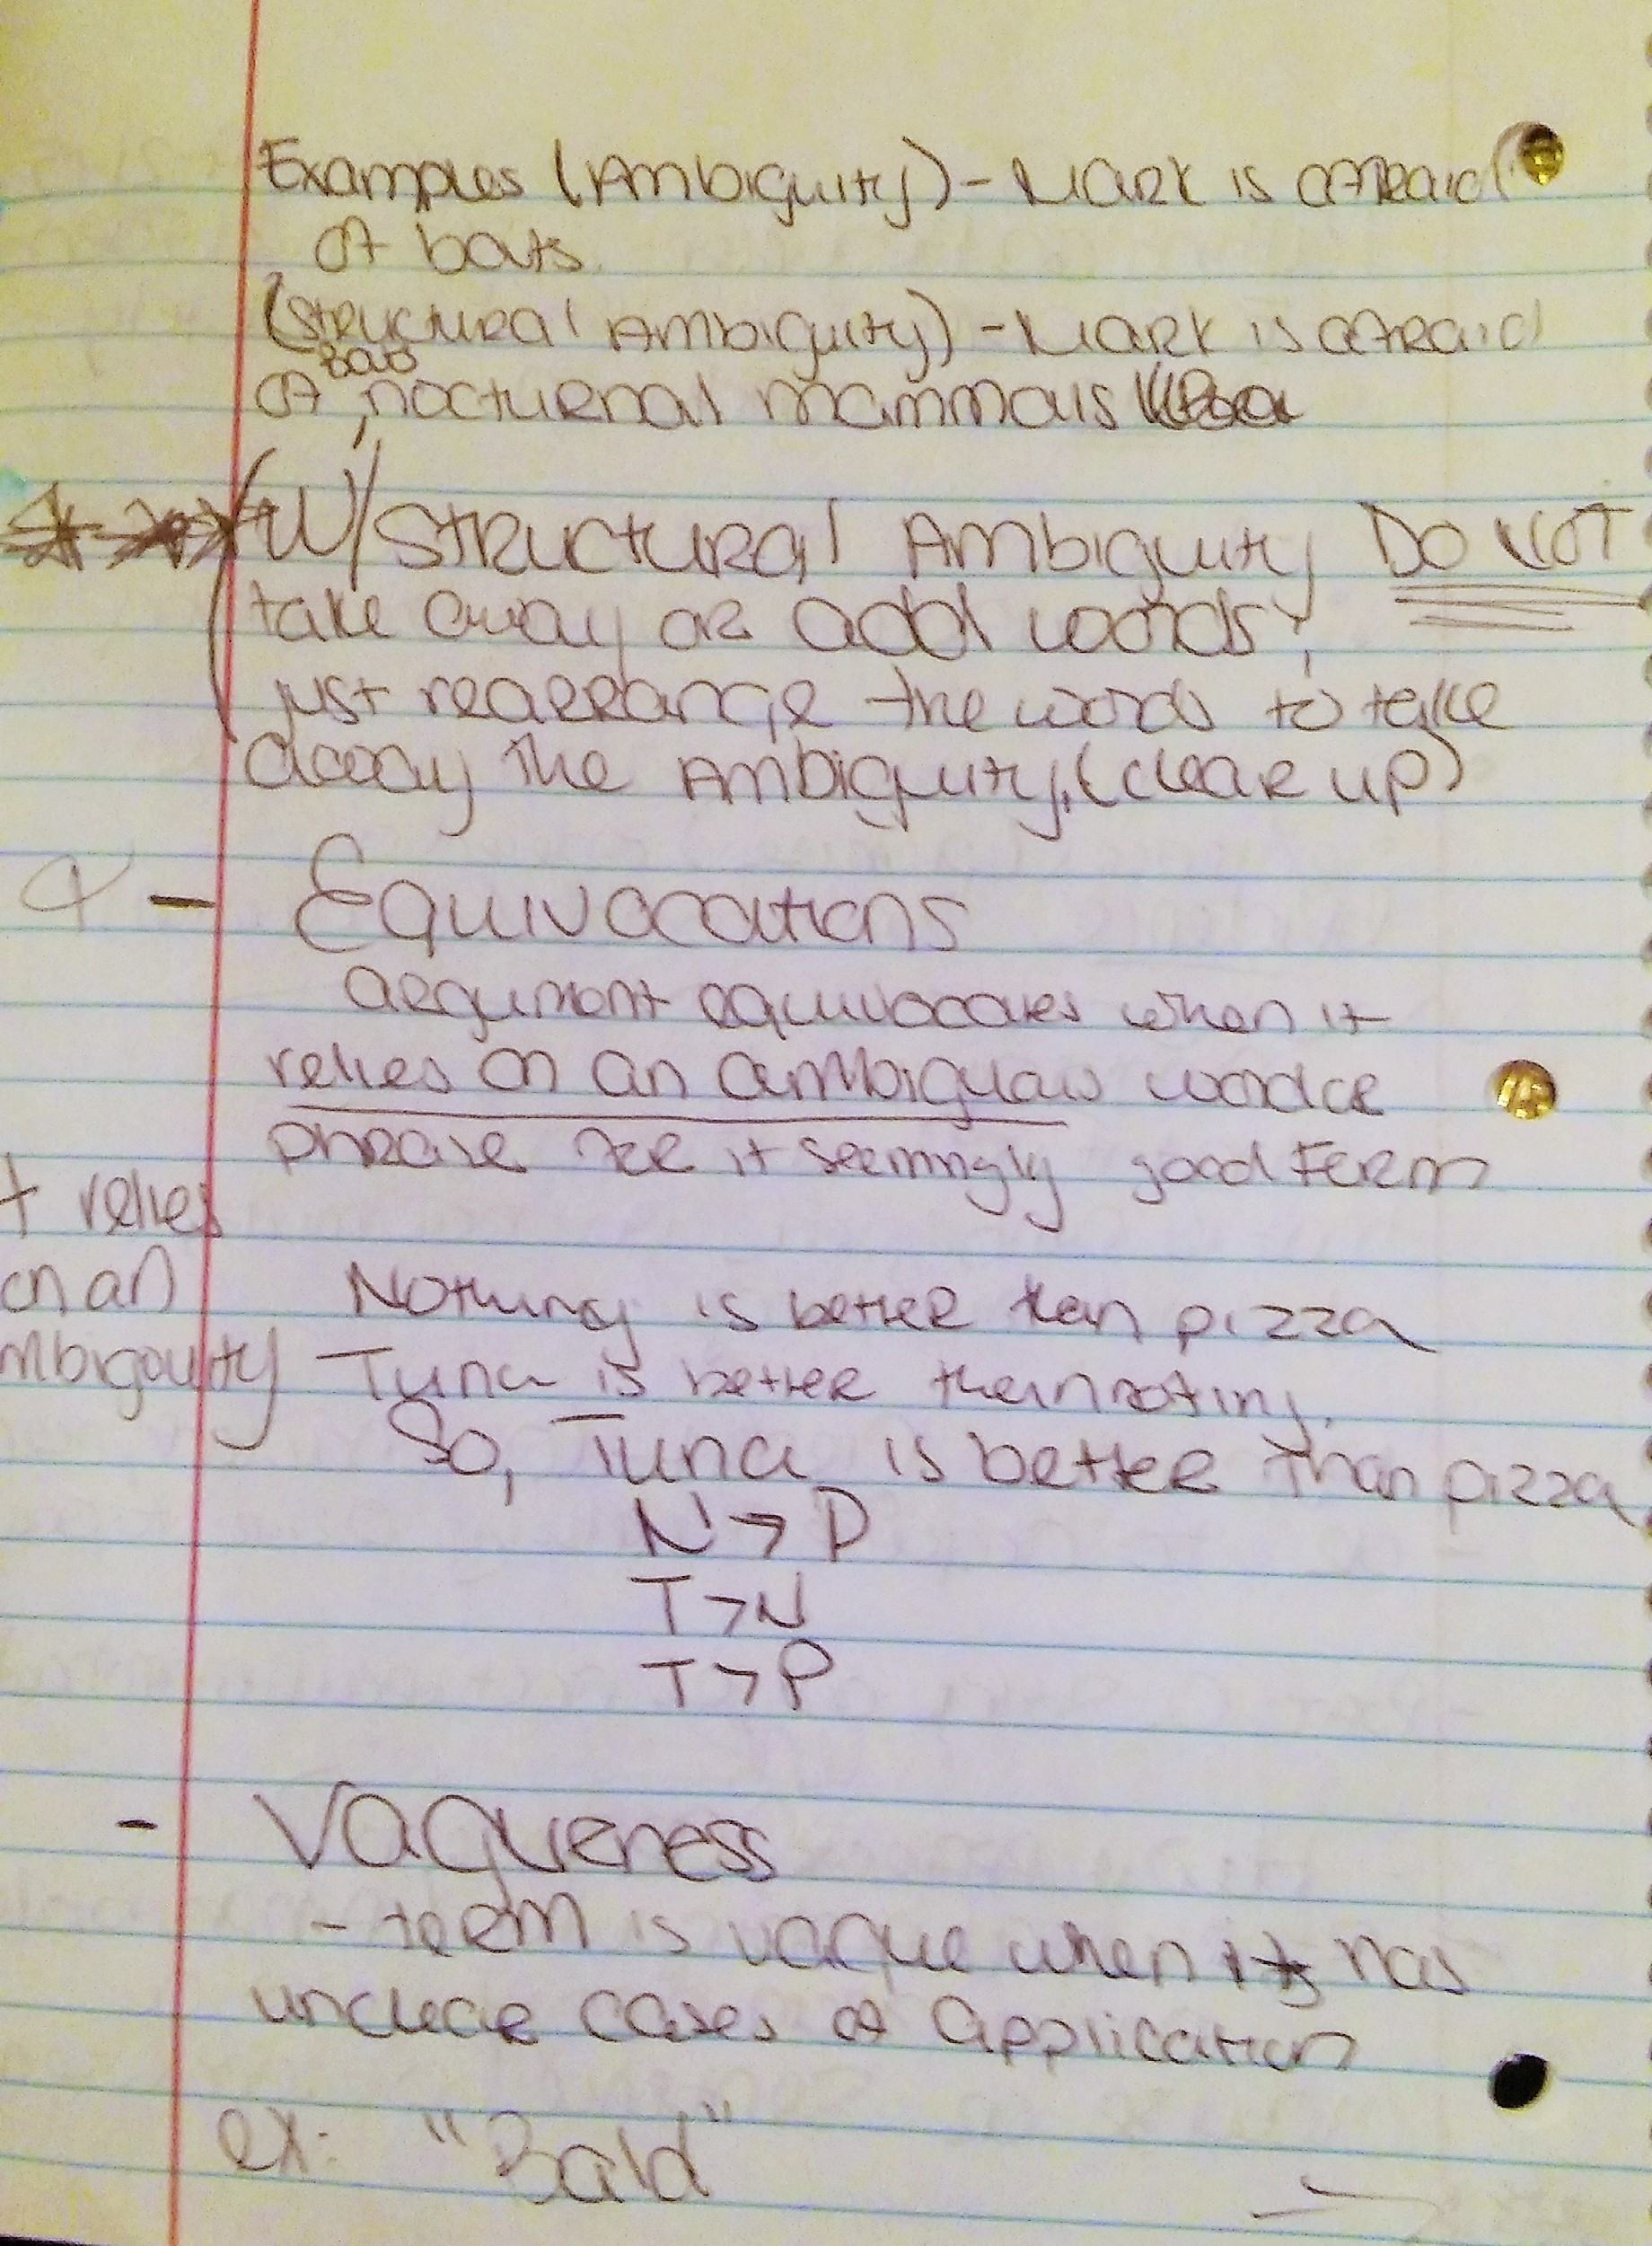 Examples (Ambiguity) - Mark is afraid
of bats.
(structural Ambiguity) - Mark is afraid
Bad
of, nocturnal mammals
(W/ Structural Ambiguity DO NOT
take away or add words;
just rearrange the words to take
away the Ambiguity. (clear up)
- Equivocations
argument equivocates when it
relies on an ambiguous word or
phrase for it seemingly good Form
+ relies
on an
mbigauity
Nothing is better than pizza
Tuna is better than noting.
So, Tuna is better than pizza
N > P
T > N
T > P
- Vagueness
- term is vague when it has
unclear cases of application
ex: "Bald"